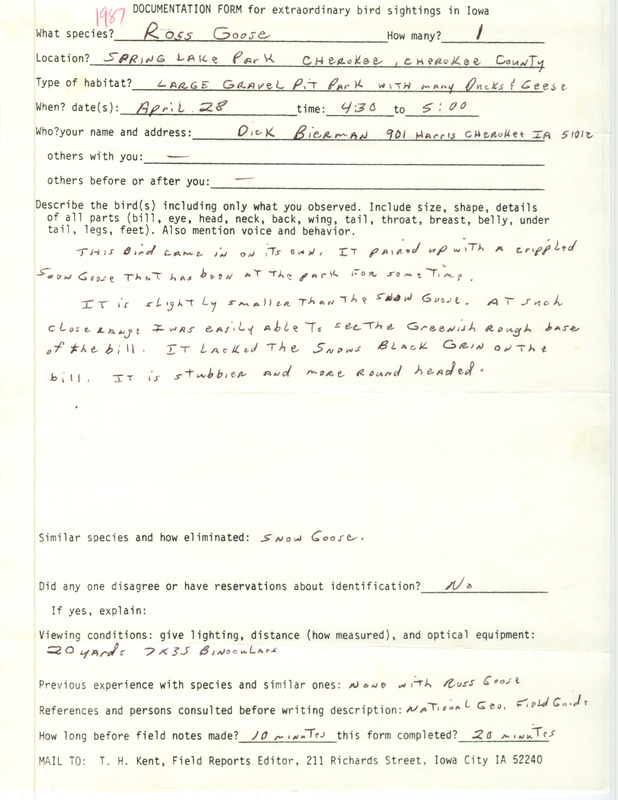 1987
DOCUMENTATION FORM for extraordinary bird sightings in Iowa
What species? Ross Goose How many? 1
Location? SPRING LAKE PARK CHEROKEE, CHEROKEE COUNTY
Type of habitat? LARGE GRAVEL PIT PARK WITH MANY DUCKS & GEESE
When? date(s): April 28 time: 4:30 to 5:00
Who?your name and address: DICK BIERMAN 901 HARRIS CHEROKEE IA 51012
others with you: —
others before or after you: —
Describe the bird(s) including only what you observed. Include size, shape, details
of all parts (bill, eye, head, neck, back, wing, tail, throat, breast, belly, under
tail, legs, feet). Also mention voice and behavior.
THIS Bird came in on its own. IT paired up with a crippled
Snow Goose That has been at the park for some Time.
IT is slightly smaller than the Snow Goose. AT such
close range I was easily able to see the Greenish Rough base
of the bill. IT Lacked The Snows Black Grin on the
bill. IT is stubbier and more round headed.
Similar species and how eliminated: Snow Goose.
Did any one disagree or have reservations about identification? No
If yes, explain:
Viewing conditions: give lighting, distance (how measured), and optical equipment:
20 yards 7X35 Binoculars
Previous experience with species and similar ones: None with Ross Goose
References and persons consulted before writing description: NATIONAL Geo. Field Guide
How long before field notes made? 10 minutes this form completed? 20 minutes
MAIL TO: T. H. Kent, Field Reports Editor, 211 Richards Street, Iowa City IA 52240